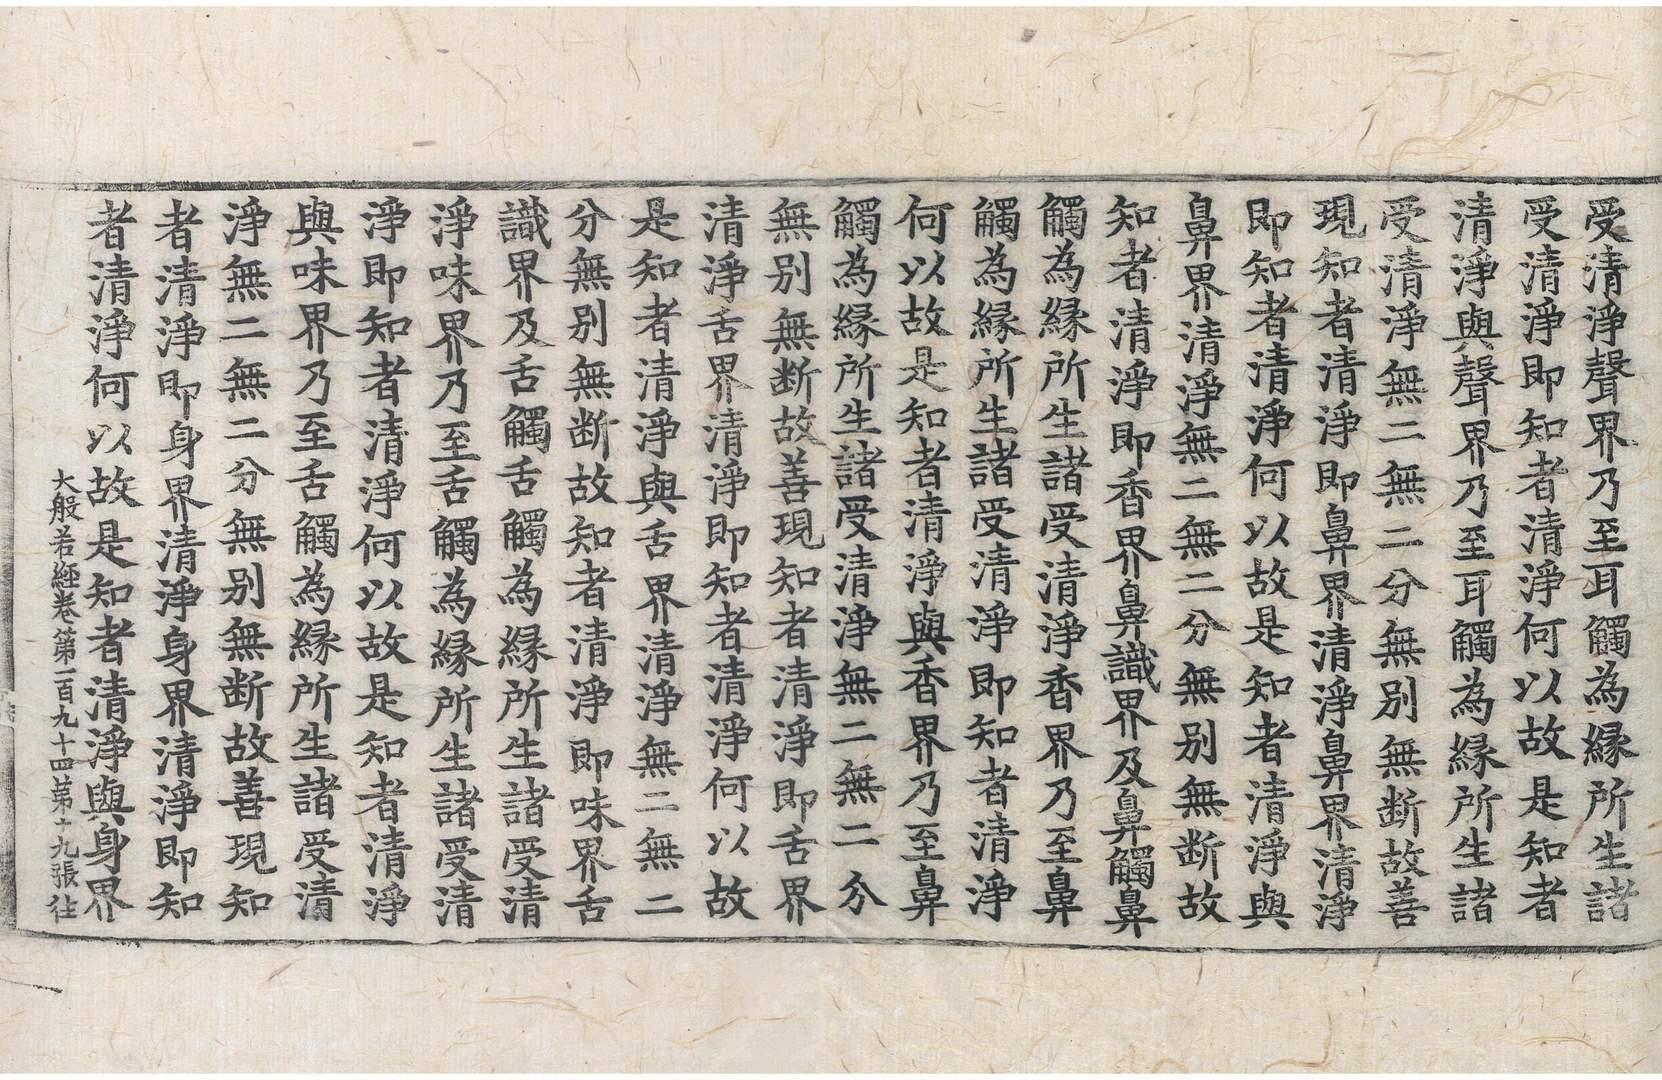 受清淨聲界乃至耳觸為縁所生諸
受清淨即知者清淨何以故是知者
清淨與聲界乃至耳觸為縁所生諸
受清淨無二無二分無别無断故善
現知者清淨即鼻界清淨鼻界清淨
即知者清淨何以故是知者清淨與
鼻界清淨無二無二分無别無断故
知者清淨即香界鼻識界及鼻觸鼻
觸為縁所生諸受清淨香界乃至鼻
觸為縁所生諸受清淨即知者清淨
何以故是知者清淨與香界乃至鼻
觸為縁所生諸受清淨無二無二分
無别無断故善現知者清淨即舌界
清淨舌界清淨即知者清淨何以故
是知者清淨與舌界清淨無二無二
分無别無断故知者清淨即味界舌
識界及舌觸舌觸為縁所生諸受清
淨味界乃至舌觸為縁所生諸受清
淨即知者清淨何以故是知者清淨
與味界乃至舌觸為縁所生諸受清
淨無二無二分無别無断故善現知
者清淨即身界清淨身界清淨即知
者清淨何以故是知者清淨與身界
大般若經卷第一百九十四第十九張往